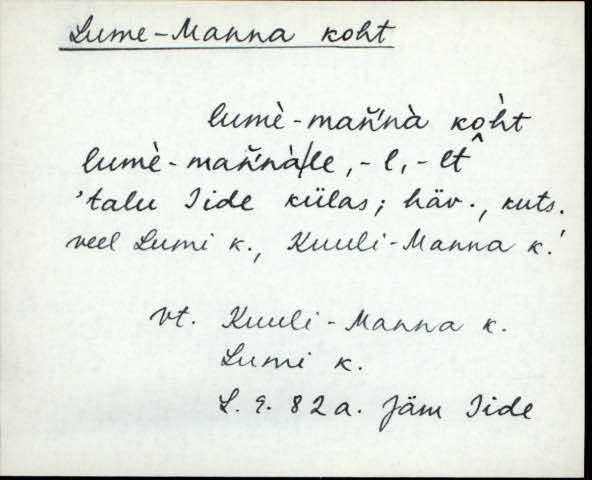 Lume-Manna koht
lumè-mañ'nà kòht
lumè-mañ'nà/le, -l, -lt
'talu Iide külas; häv., kuts.
veel Lumi k., Kuuli-Manna k.'
vt. Kuuli-Manna k.
Lumi k.
L. 9. 82a. Jäm Iide